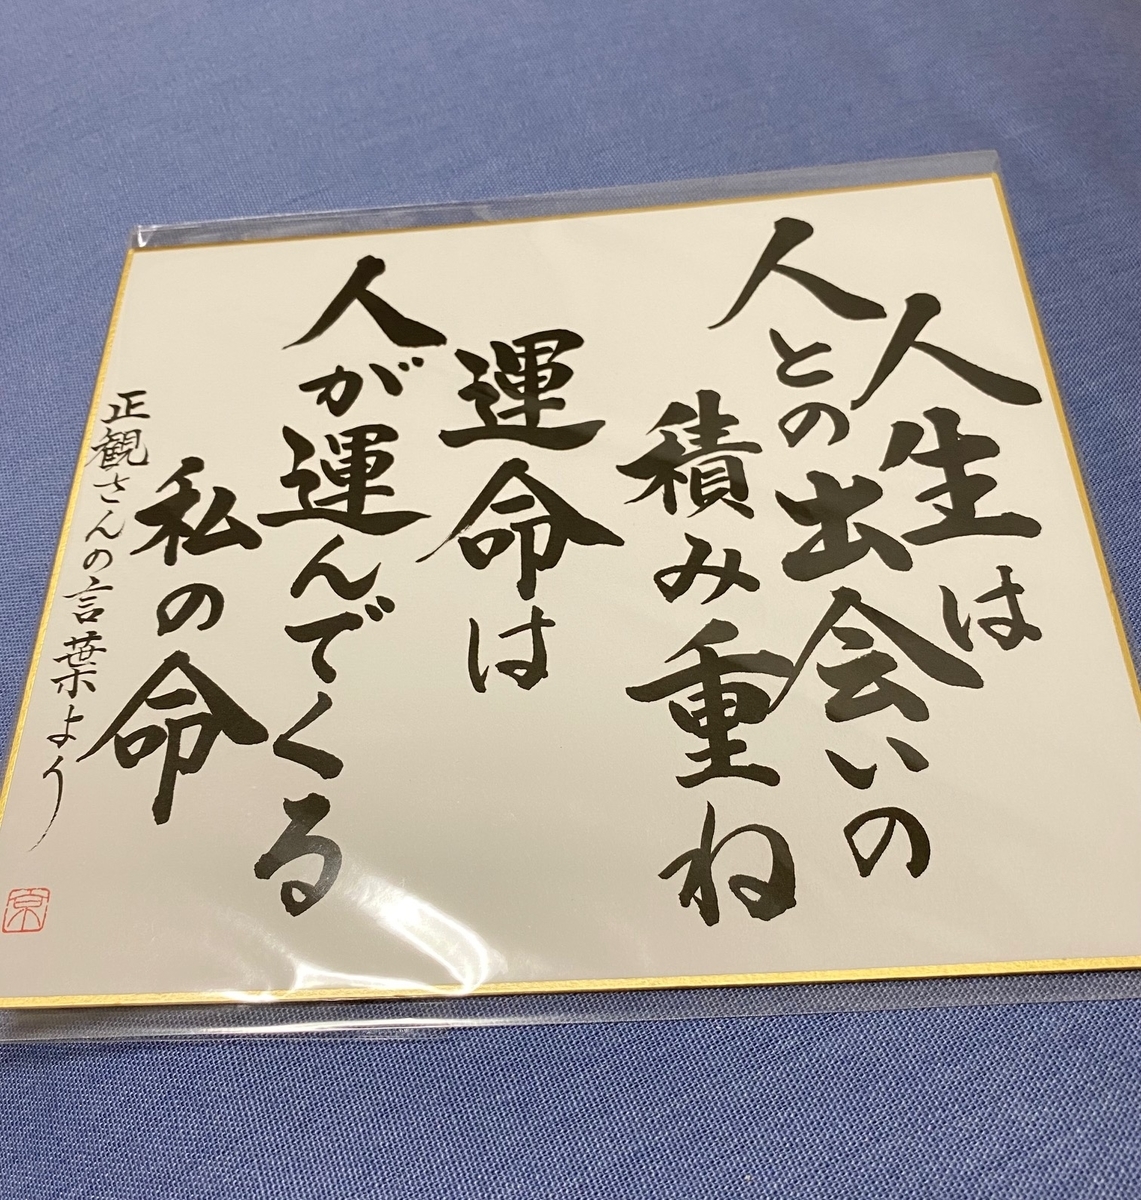 人生は
人との出会いの
積み重ね
運命は
人が運んでくる
私の命
正観さんの言葉より
京